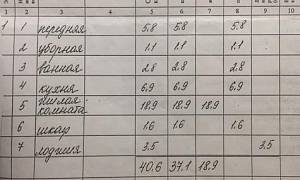 1 2 3 5 6 7 8 9 10
1 1 передняя 5.8 5.8 5.8
2 уборная 1.1 1.1 1.1
3 ванная 2.8 2.8 2.8
4 кухня 6.9 6.9 6.9
5 жилая комната 18.9 18.9 18.9
6 шкаф 1.6 1.6 1.6
7 лоджия 3.5 3.5
40.6 37.1 18.9